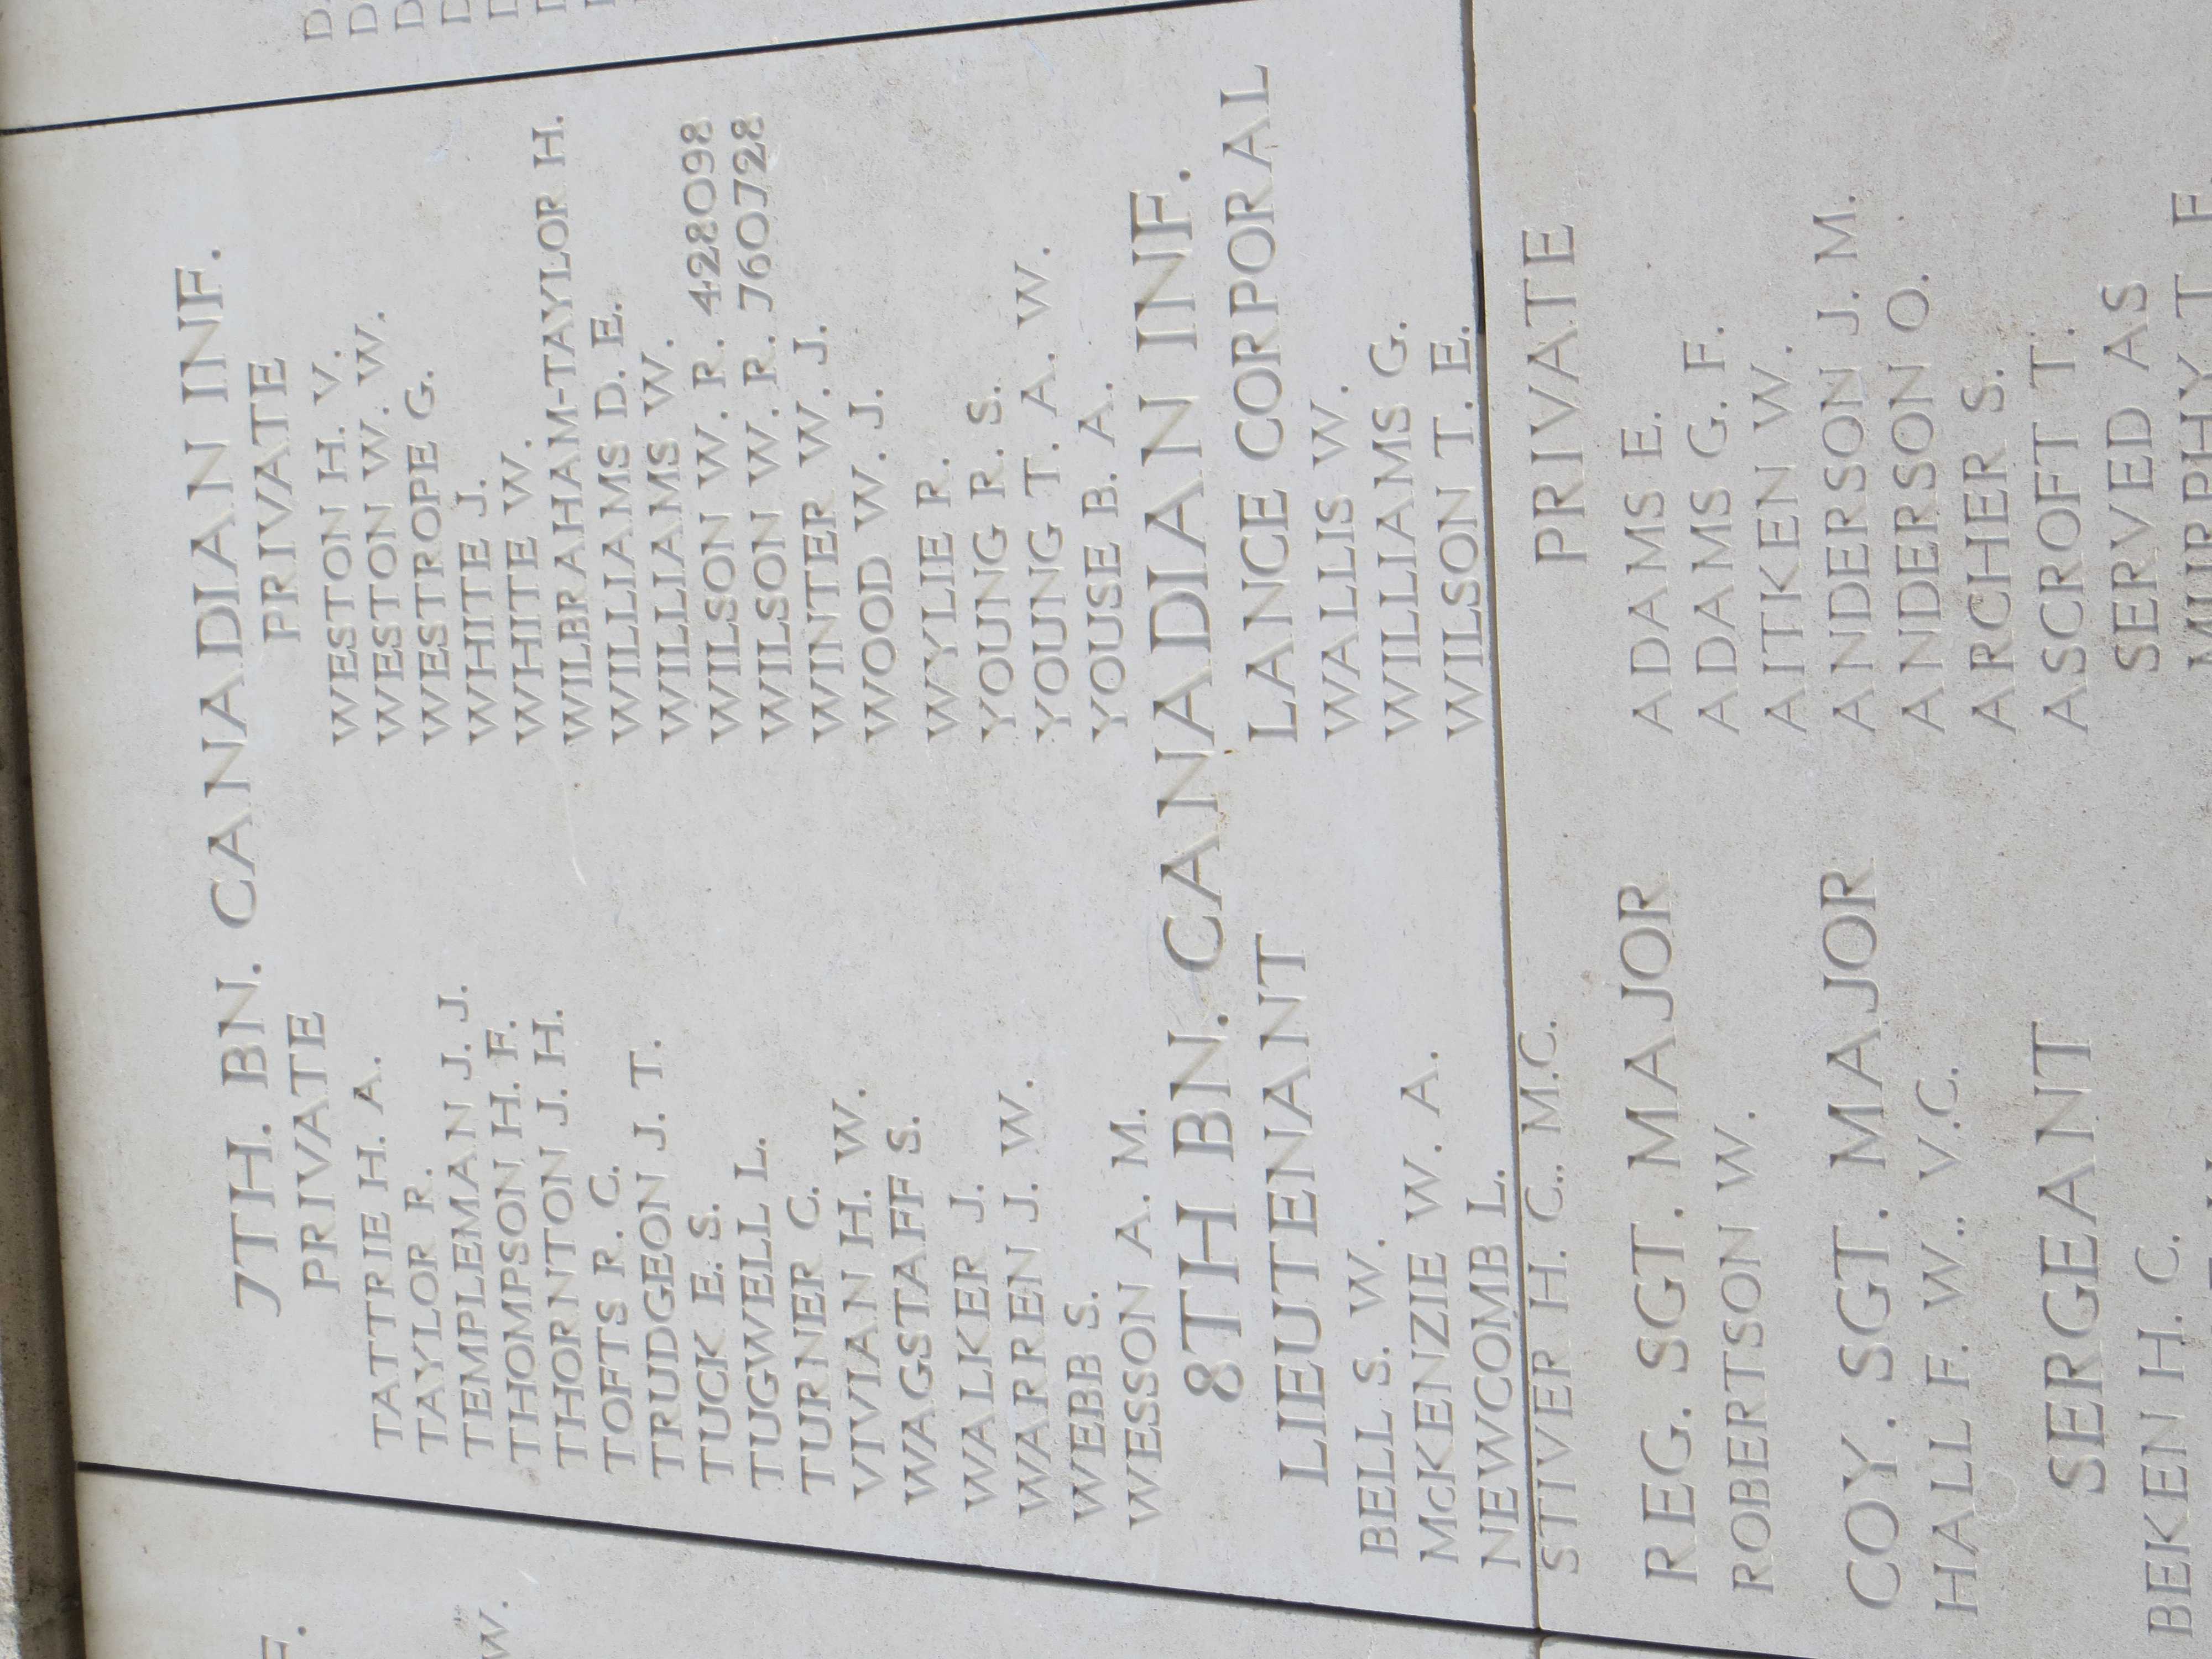 7TH. BN. CANADIAN INF.
PRIVATE
TATTRIE H. A.
TAYLOR R.
TEMPLEMAN J. J.
THOMPSON H. F.
THORNTON J. H.
TOFTS R. C.
TRUDGEON J. T.
TUCK E. S.
TUGWELL L.
TURNER C.
VIVIAN H. W.
WAGSTAFF S.
WALKER J.
WARREN J. W.
WEBB S.
WESSON A. M.
PRIVATE
WESTON H. V.
WESTON W. W.
WESTROPE G.
WHITE J.
WHITE W.
WILBRAHAM-TAYLOR H.
WILLIAMS D. E.
WILLIAMS W.
WILSON W. R. 428098
WILSON W. R. 760728
WINTER W. J.
WOOD W. J.
WYLIE R.
YOUNG R. S.
YOUNG T. A. W.
YOUSE B. A.
8TH BN. CANADIAN INF.
LIEUTENANT
BELL S. W.
McKENZIE W. A.
NEWCOMB L.
STIVER H. C., M.C.
REG. SGT. MAJOR
ROBERTSON W.
COY. SGT. MAJOR
HALL F. W., V.C.
SERGEANT
BEKEN H. C.
LANCE CORPORAL
WALLIS W.
WILLIAMS G.
WILSON T. E.
PRIVATE
ADAMS E.
ADAMS G. F.
AITKEN W.
ANDERSON J. M.
ANDERSON O.
ARCHER S.
ASCROFT T.
SERVED AS
MURPHY T. F.